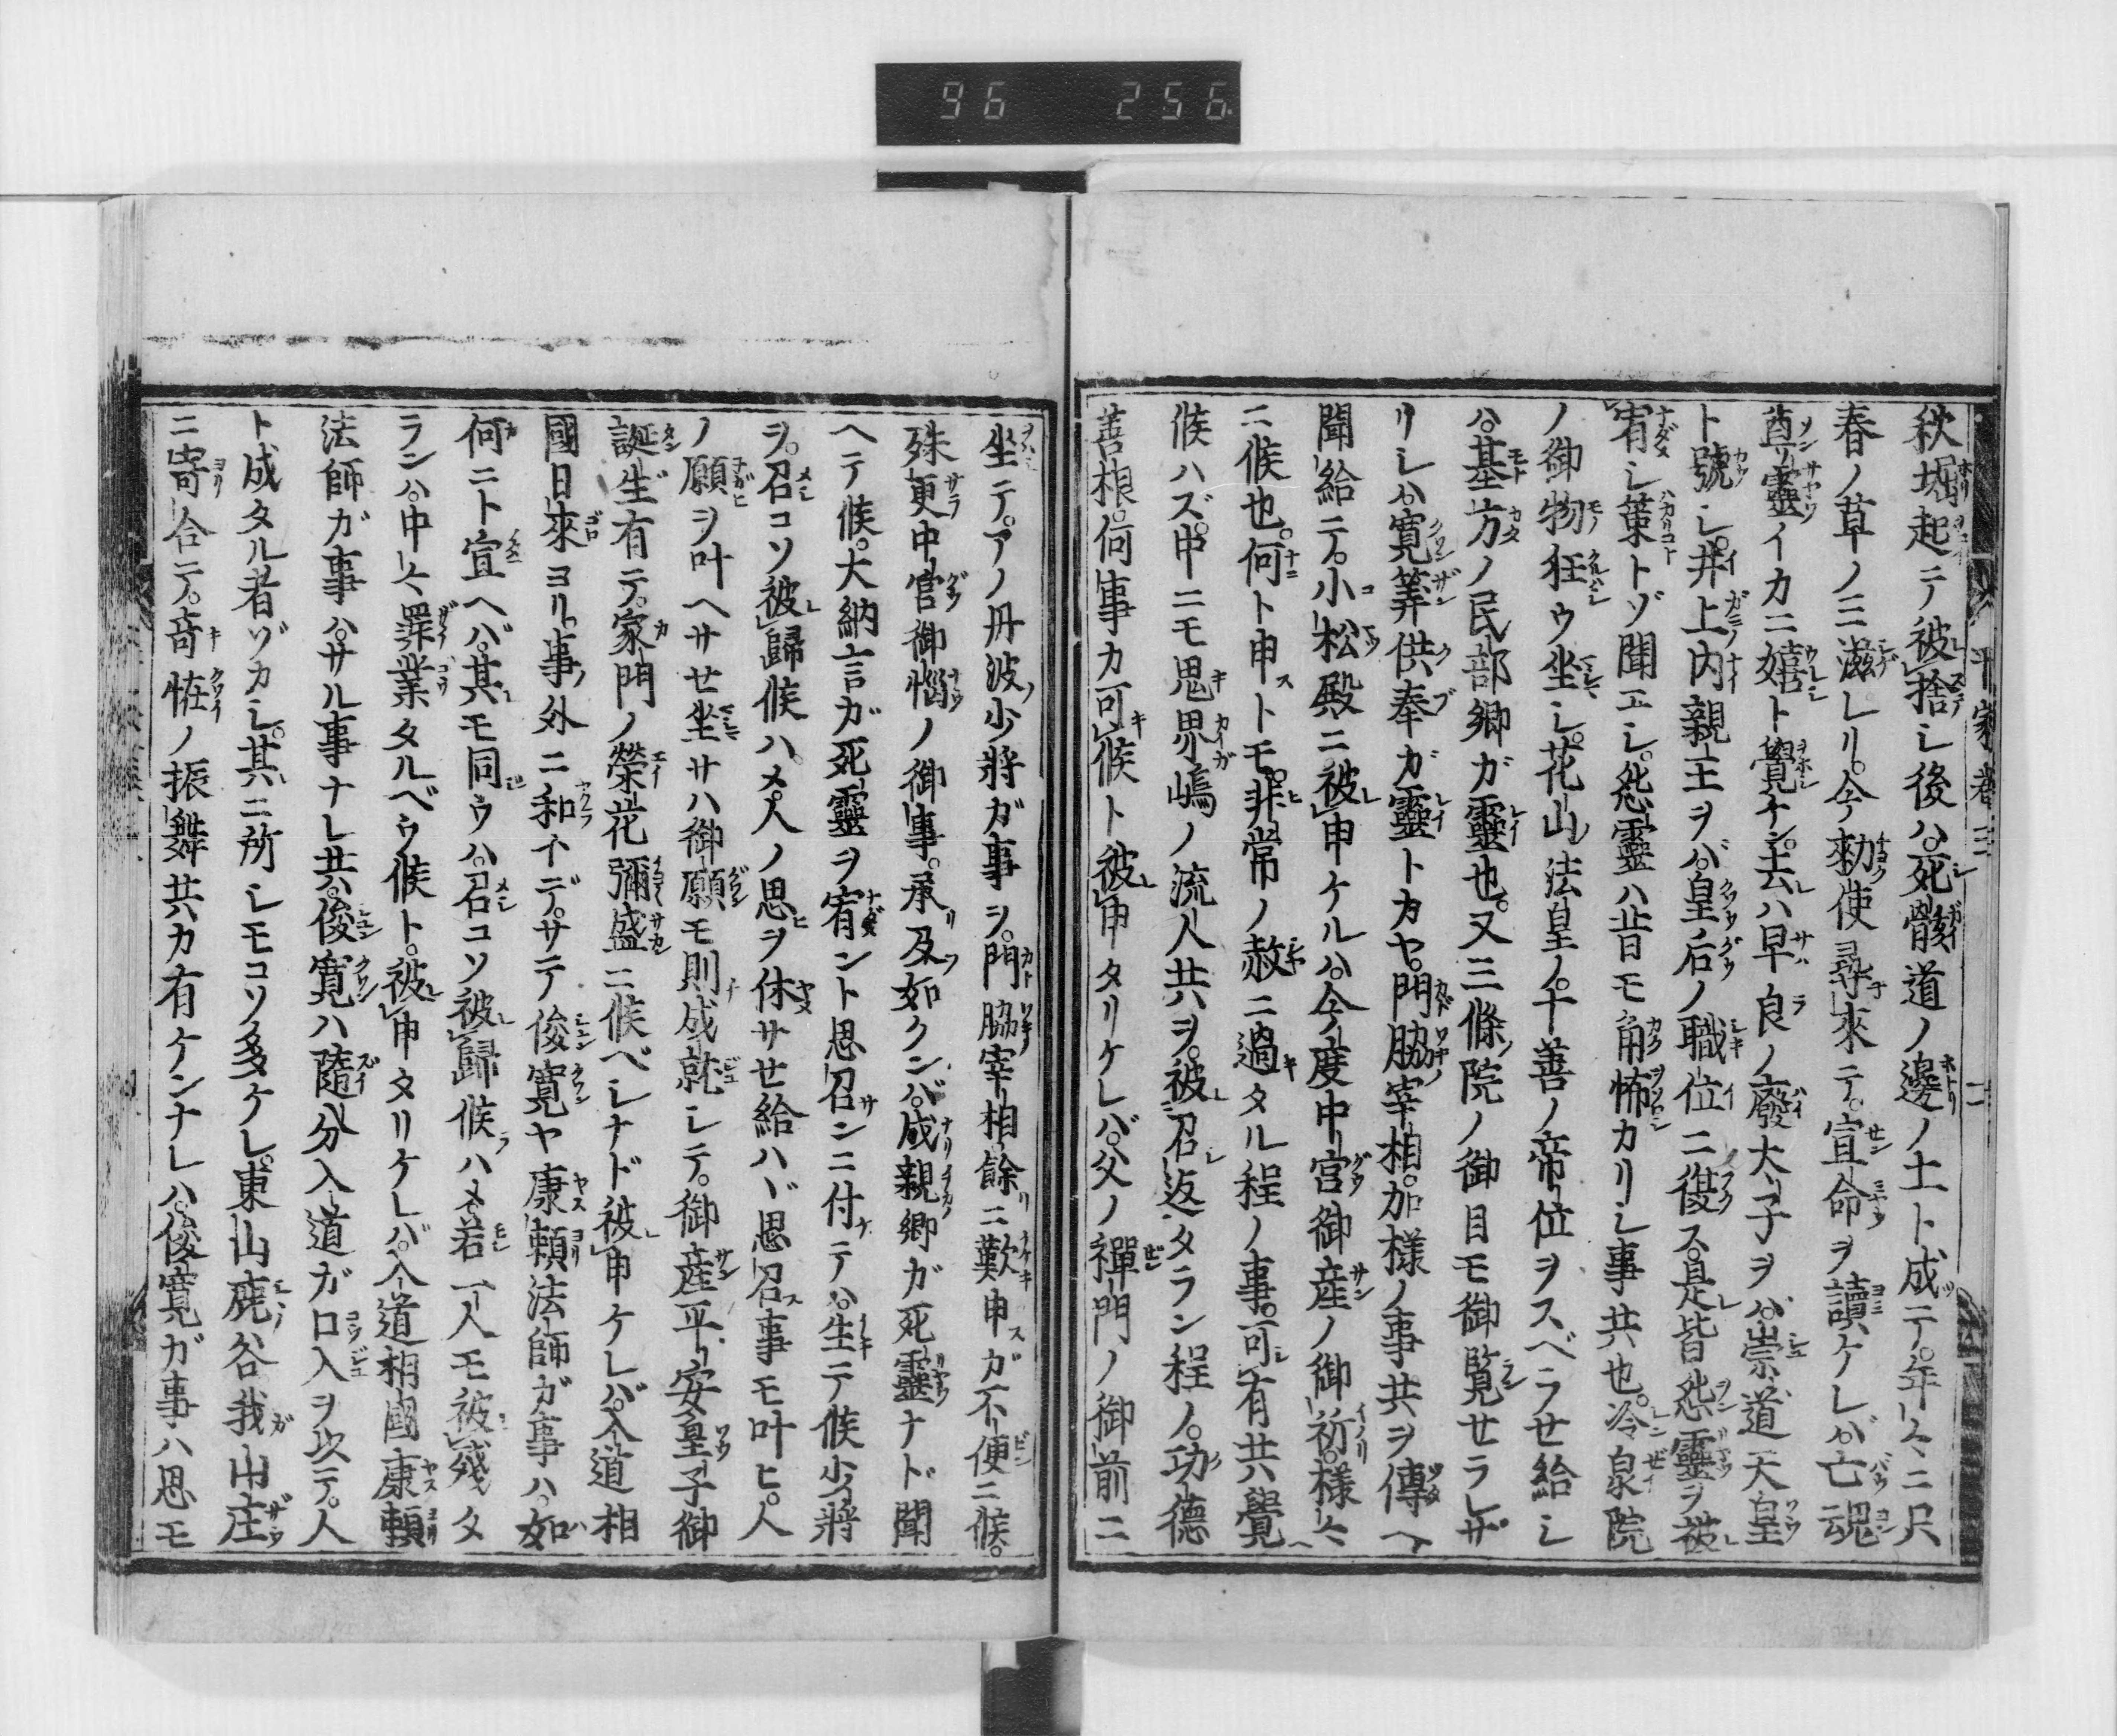 96 256
平家巻三 二
秋堀起テ被捨シ後ハ。死骸道ノ邊ノ土ト成テ。年〻ニ只
春ノ草ノミ滋レリ。今勅使尋來テ。宣命ヲ讀ケレバ。亡魂
尊靈イカニ嬉ト覺ケン。去ハ早良ノ廢太子ヲバ。崇道天皇
ト號シ。井上内親王ヲバ。皇后ノ職位ニ復ス。是皆怨靈ヲ被
宥シ策トゾ聞エシ。怨靈ハ昔モ角怖カリシ事共也。冷泉院
ノ御物狂ウ坐シ。花山ノ法皇ノ。十善ノ帝位ヲスベラせ給シ
ハ。基方ノ民部卿ガ靈也。又三條ノ院ノ御目モ御覧せラレザ
リシハ。寛筭供奉ガ靈トカヤ。門脇宰相。加樣ノ事共ヲ傳ヘ
聞給テ。小松殿ニ被申ケルハ。今度中宮御産ノ御祈。樣〻
ニ候也。何ト申トモ。非常ノ赦ニ過タル程ノ事。可有共覺
候ハズ。中ニモ鬼界嶋ノ流人共ヲ。被召返タラン程ノ。功德
善根。何事カ可候ト被申タリケレバ。父ノ禪門ノ御前ニ
坐テ。アノ丹波ノ少將ガ事ヲ。門脇宰相餘ニ歎申ガ不便ニ候。
殊更中宮御惱ノ御事。承及如クンバ。成親卿ガ死靈ナド聞
ヘテ候。大納言ガ死靈ヲ宥ント思召ンニ付テハ。生テ候少將
ヲ。召コソ被歸候ハメ。人ノ思ヲ休サせ給ハヾ。思召事モ叶ヒ。人
ノ願ヲ叶ヘサせ坐サハ御願モ則成就シテ。御産平安皇子御
誕生有テ。家門ノ榮花彌盛ニ候ベシナド被申ケレバ。入道相
國日來ヨリ。事ノ外ニ和イデ。サテ俊寛ヤ康頼法師ガ事ハ。如
何ニト宣ヘバ。其モ同ウハ。召コソ被歸候ハメ。若一人モ被殘タ
ランハ。中〻罪業タルベウ候ト。被申タリケレバ。入道相國康頼
法師ガ事ハ。サル事ナレ共。俊寛ハ隨分入道ガ口入ヲ以テ。人
ト成タル者ゾカシ。其ニ所シモコソ多ケレ。東山鹿谷我山庄
ニ寄合テ。奇怪ノ振舞共カ有ケンナレハ。俊寛ガ事ハ思モ